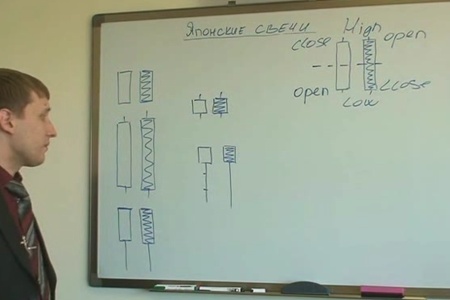 Японские свечи
High
close open
open close
Low